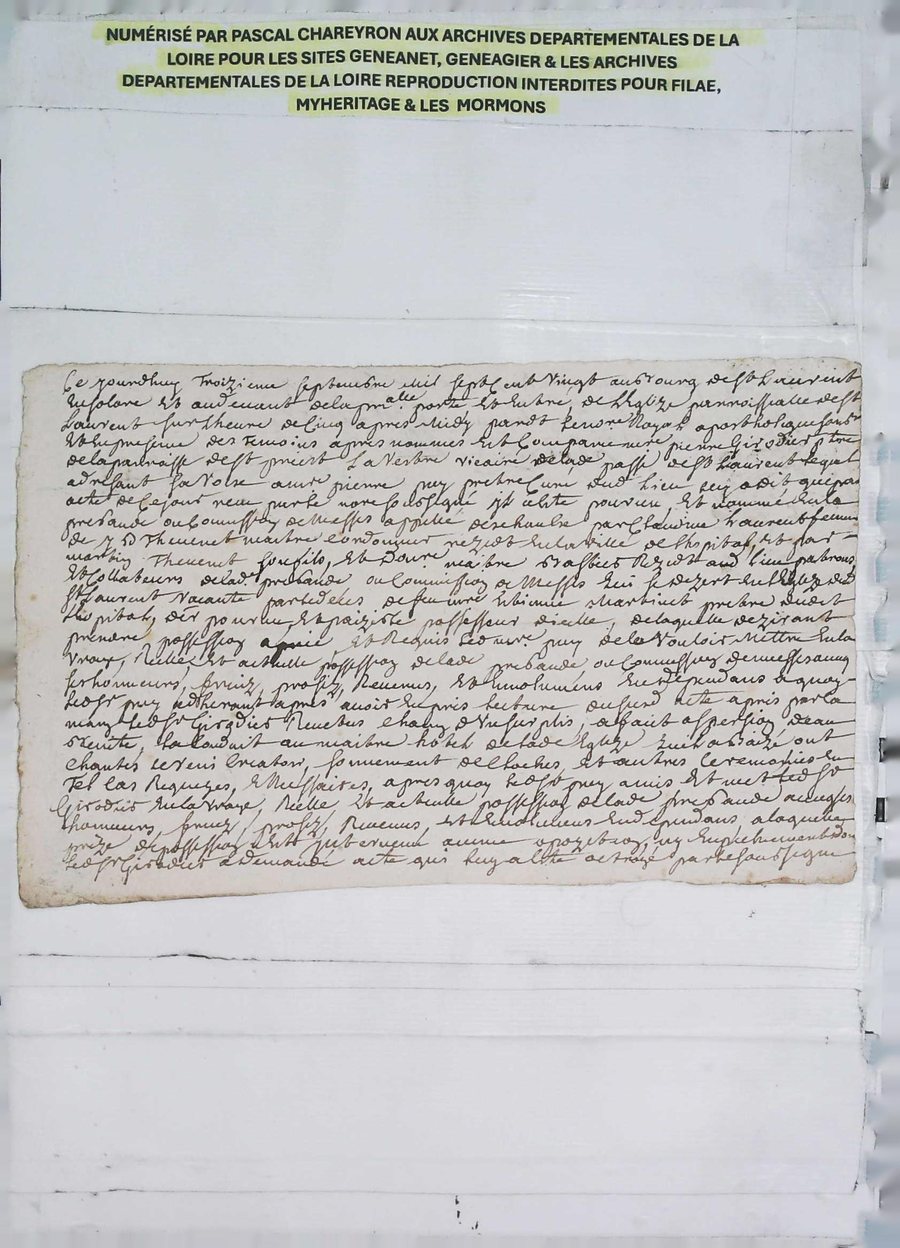 NUMÉRISÉ PAR PASCAL CHAREYRON AUX ARCHIVES DEPARTEMENTALES DE LA
LOIRE POUR LES SITES GENEANET, GENEAGIER & LES ARCHIVES
DEPARTEMENTALES DE LA LOIRE REPRODUCTION INTERDITES POUR FILAE,
MYHERITAGE & LES MORMONS
Ce jourdhuy Troizieme septembre mil sept Cent Vingt au Bourg de St Laurent
En solore Et audevant de la pnalle porte Et Entrée de l'Eglize parroissialle de St
Laurent sur l'heure de Cinq apres Midy pardt le nore Royal apostholique soubsé
Et En presence des Temoins apres nommés Est Comparu mre pierre Girodier ptre
de la parroisse de St priest La Vestre vicaire de lade passe de St Laurent Lequel
adressant sa Voix a mre pierre puy prebtre Curé dud lieu luy a dit que par
acte de Ce jour receu par le nore soussigné Il a esté pourveu, Et nommé En la
prebande ou Commission de Messes appellée par Claudine Laurent femme
de Thevenet maitre Cordonnier rezidt En la ville de Lhopital, Et par
Thevenet son fils, Et maitre Rezidt aud lieu patrons
Et Collateurs de lad prebande ou Commission de Messes qui se dezert En l'Eglize dud
St Laurent Vacante par le deces de feu mre Estienne Martinet prebtre dudit
Lhopital, possesseur dicelle, de laquelle dezirant
prendre possession a prié, Et Requis led mre puy de le Vouloir Mettre En la
Vraye, Réelle Et actuelle possession de lade prebande ou Commission de messes aveq
ses honneurs, fruiz, profiz, Revenus, Et Emolumens En dépendans a quoy
led Sr puy adherant apres avoir Eu pris lecture dususd acte a pris par la
main led Sr Girodier Revestu dun surplis, a fait aspersion deau
Benite, La Conduit au maitre hotel de lade Eglize ont
Chanté le Veni Creator, sonnement de Cloches, Et autres Ceremonies En
Tel Cas Requizes, & Necessaires, apres quoy led Sr puy a mis Et met led Sr
Girodier En la Vraye, Réelle Et actuelle possession de lade prebande avec ses
honneurs, fruiz, profiz, Revenus, Et Emolumens En dependans a laquelle
prize de possession aucune opozition, ny Empechement dont
led Sr Girodier a demandé acte qui luy a esté octroyé par le soussigné